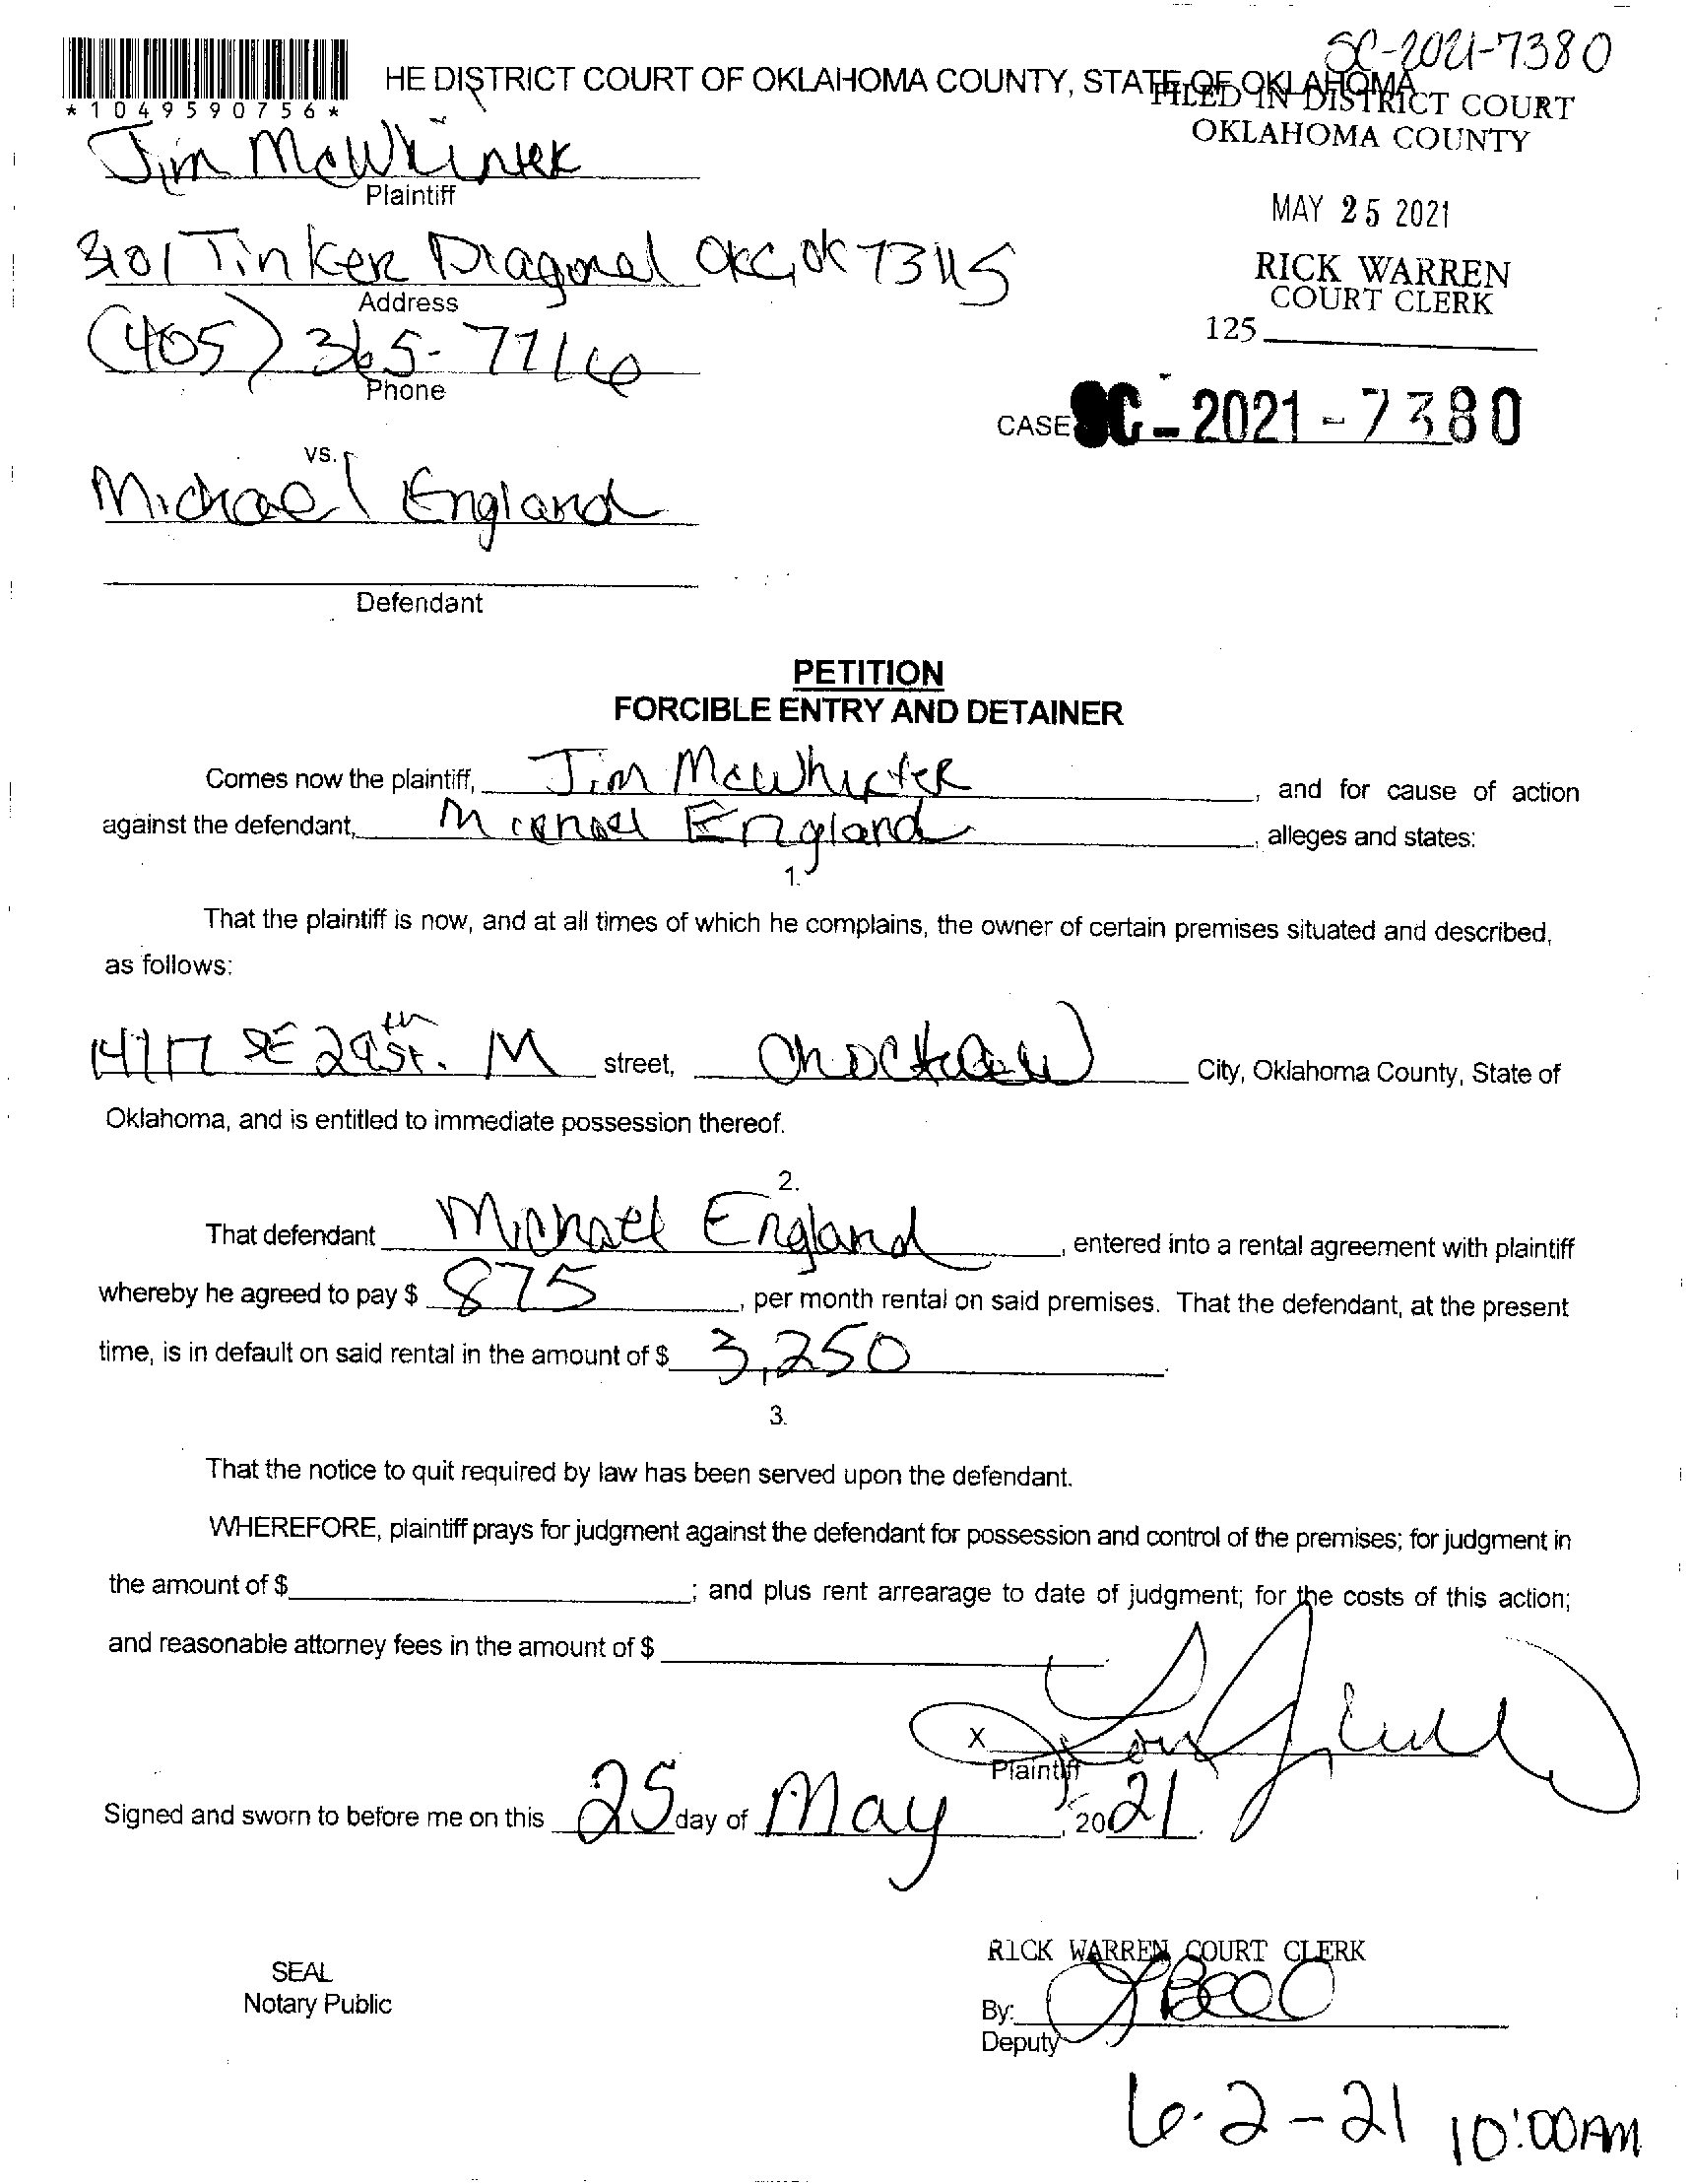 SC-2021-7380
HE DISTRICT COURT OF OKLAHOMA COUNTY, STATE OF OKLAHOMA
*1049590756*
FILED IN DISTRICT COURT
OKLAHOMA COUNTY
Jim McWhirter
Plaintiff
MAY 25 2021
3101 Tinker Diagonal OKC, OK 73115
Address
RICK WARREN
COURT CLERK
125
(405) 365-7716
Phone
CASE SC-2021-7380
vs.
Michael England
Defendant
PETITION
FORCIBLE ENTRY AND DETAINER
Comes now the plaintiff, Jim McWhirter, and for cause of action
against the defendant, Michael England, alleges and states:
1.
That the plaintiff is now, and at all times of which he complains, the owner of certain premises situated and described,
as follows:
14117 SE 29th St. M street, Choctaw City, Oklahoma County, State of
Oklahoma, and is entitled to immediate possession thereof.
2.
That defendant Michael England, entered into a rental agreement with plaintiff
whereby he agreed to pay $ 875, per month rental on said premises. That the defendant, at the present
time, is in default on said rental in the amount of $ 3,250
3.
That the notice to quit required by law has been served upon the defendant.
WHEREFORE, plaintiff prays for judgment against the defendant for possession and control of the premises; for judgment in
the amount of $ ; and plus rent arrearage to date of judgment; for the costs of this action;
and reasonable attorney fees in the amount of $
X
Plaintiff
Signed and sworn to before me on this 25 day of May, 2021.
RICK WARREN COURT CLERK
SEAL
Notary Public
By:
Deputy
6-2-21 10:00AM